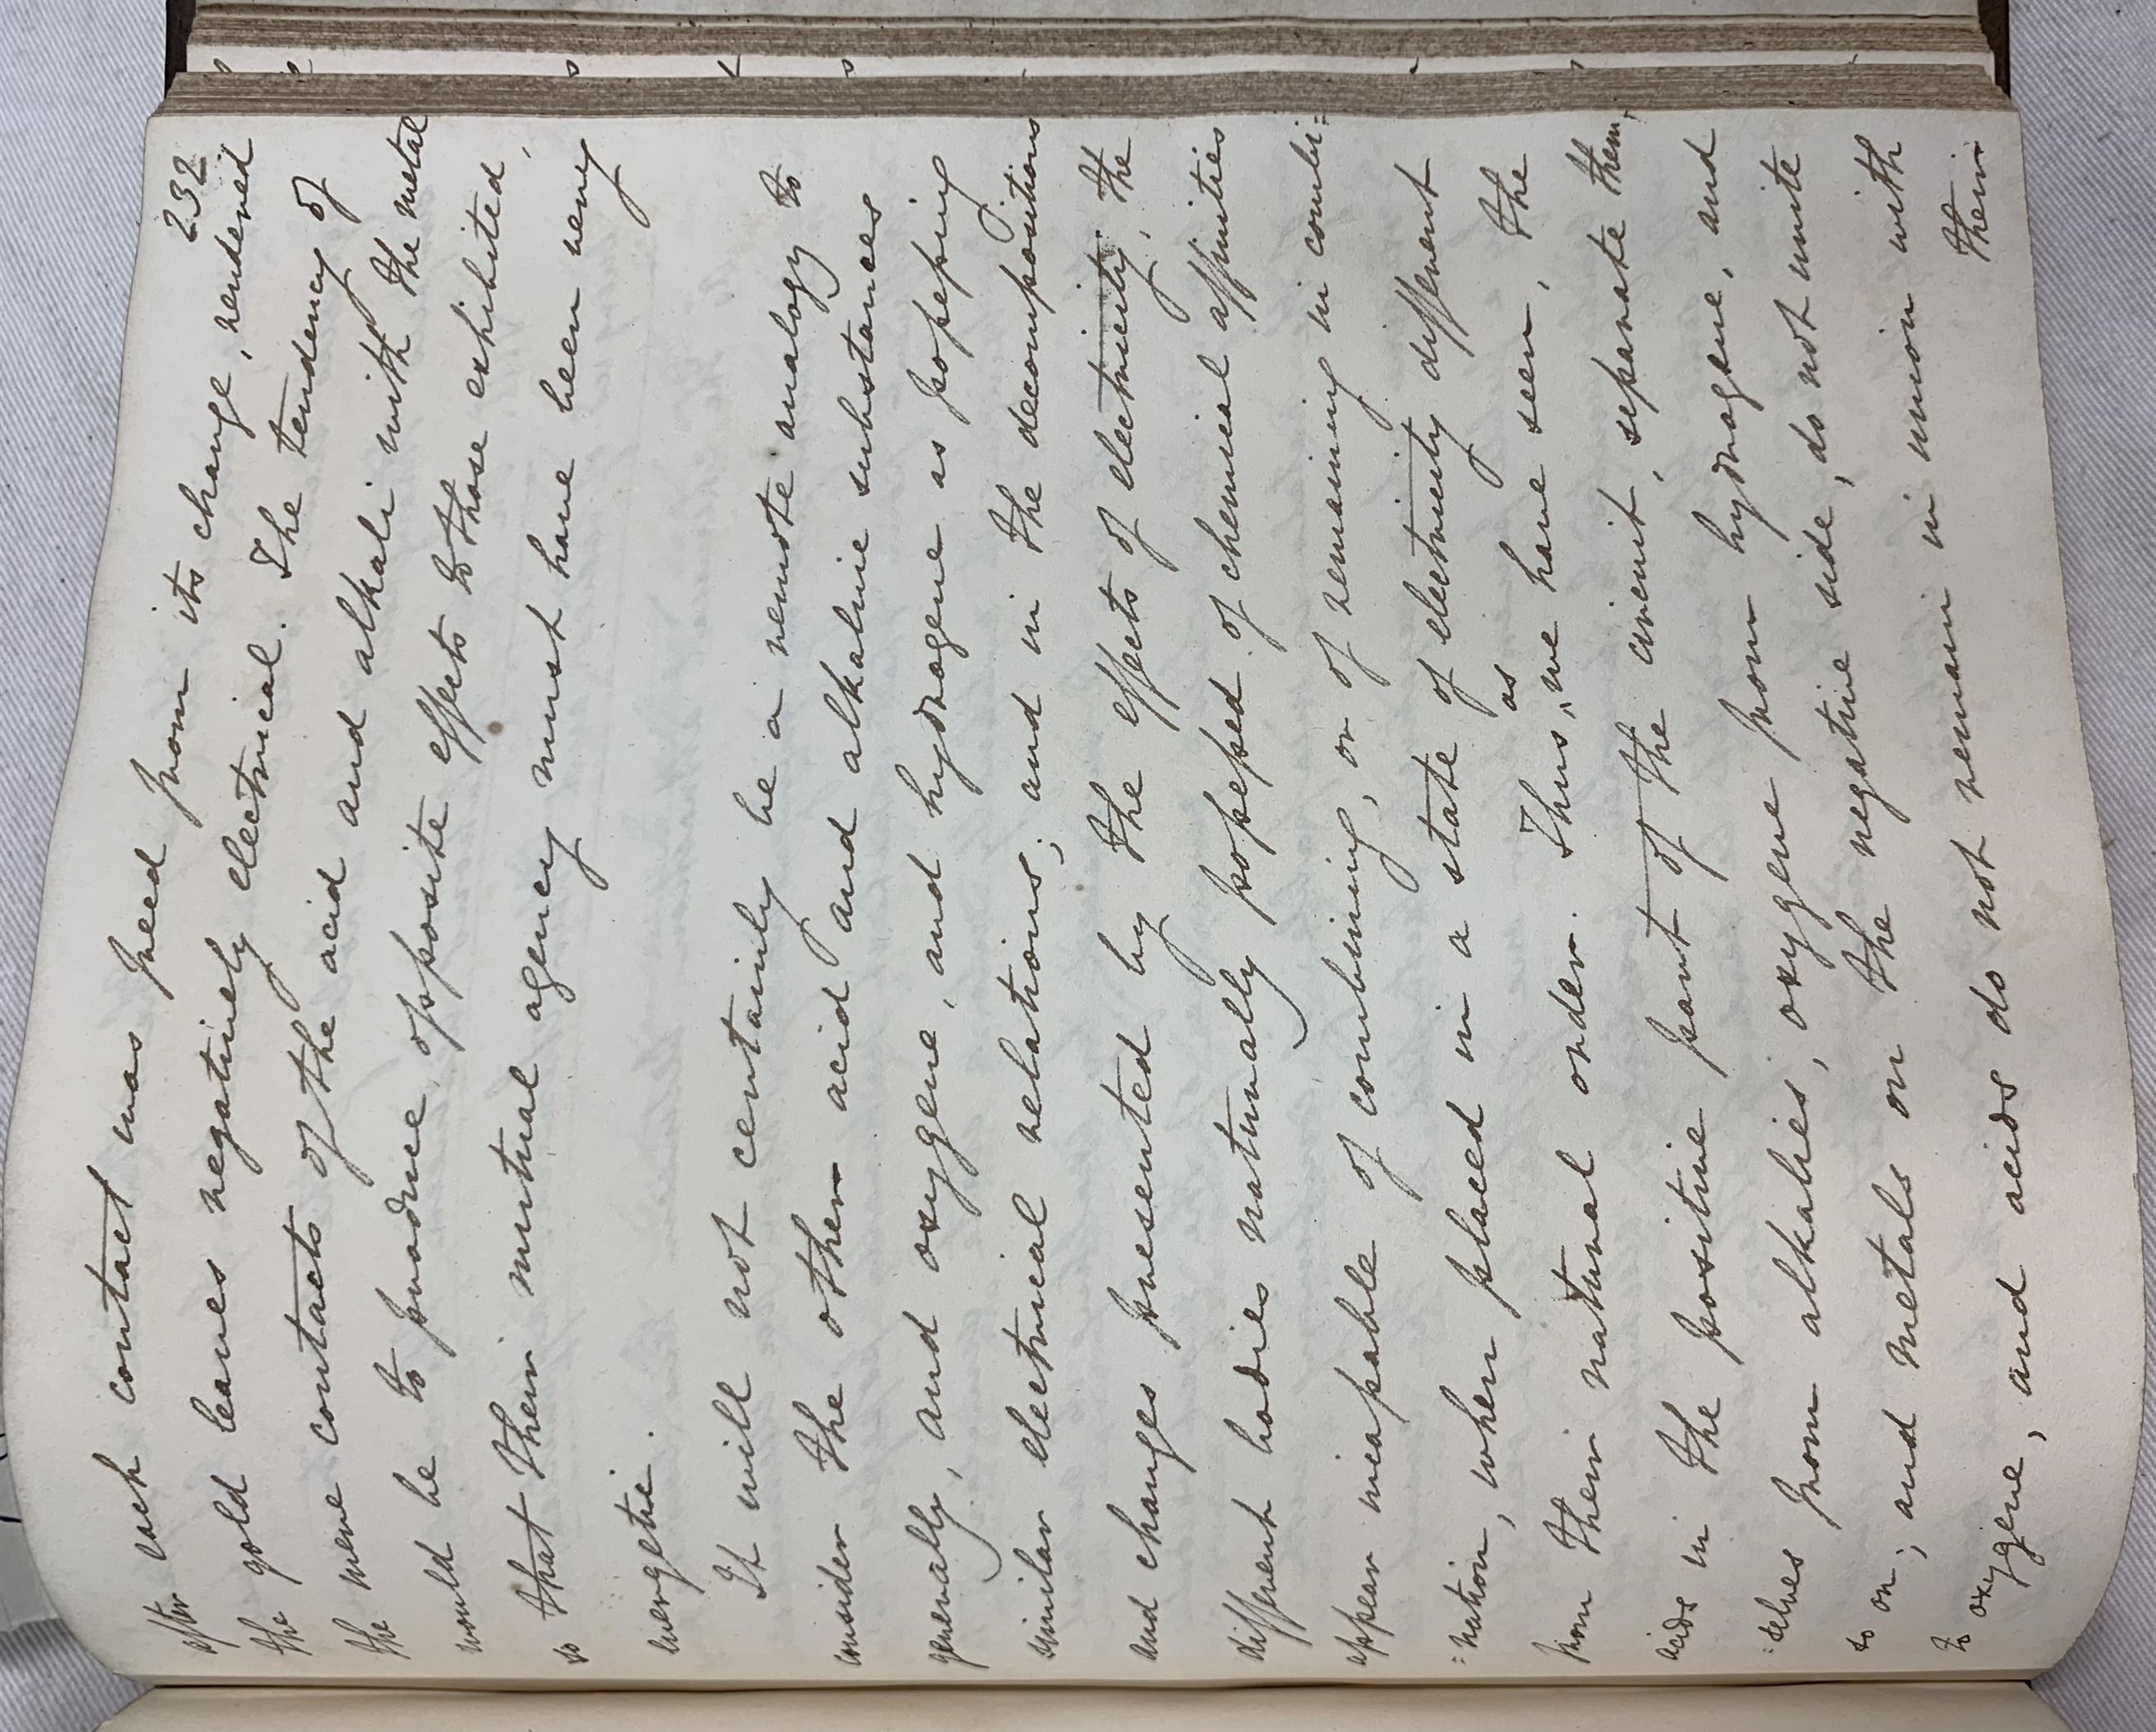 232
after each contact was freed from its change, rendered
the gold leaves negatively electrical. The tendency of
the mere contacts of the acid and alkali with the metal
would be to produce opposite effects to those exhibited,
so that their mutual agency must have been very
energetic.
It will not certainly be a remote analogy to
consider the other acid and alkaline substances
generally, and oxygene, and hydrogene as possessing
similar electrical relations; and in the decompositions
and changes presented by the effects of electricity, the
different bodies naturally possessed of chemical affinities
appear incapable of combining, or of remaining in combi=
=nation, when placed in a state of electricity different
from their natural order. Thus, as we have seen, the
acids in the positive part of the circuit, separate them
=selves from alkalies, oxygene from hydrogene, and
so on; and metals on the negative side, do not unite
to oxygene, and acids do not remain in union with
their